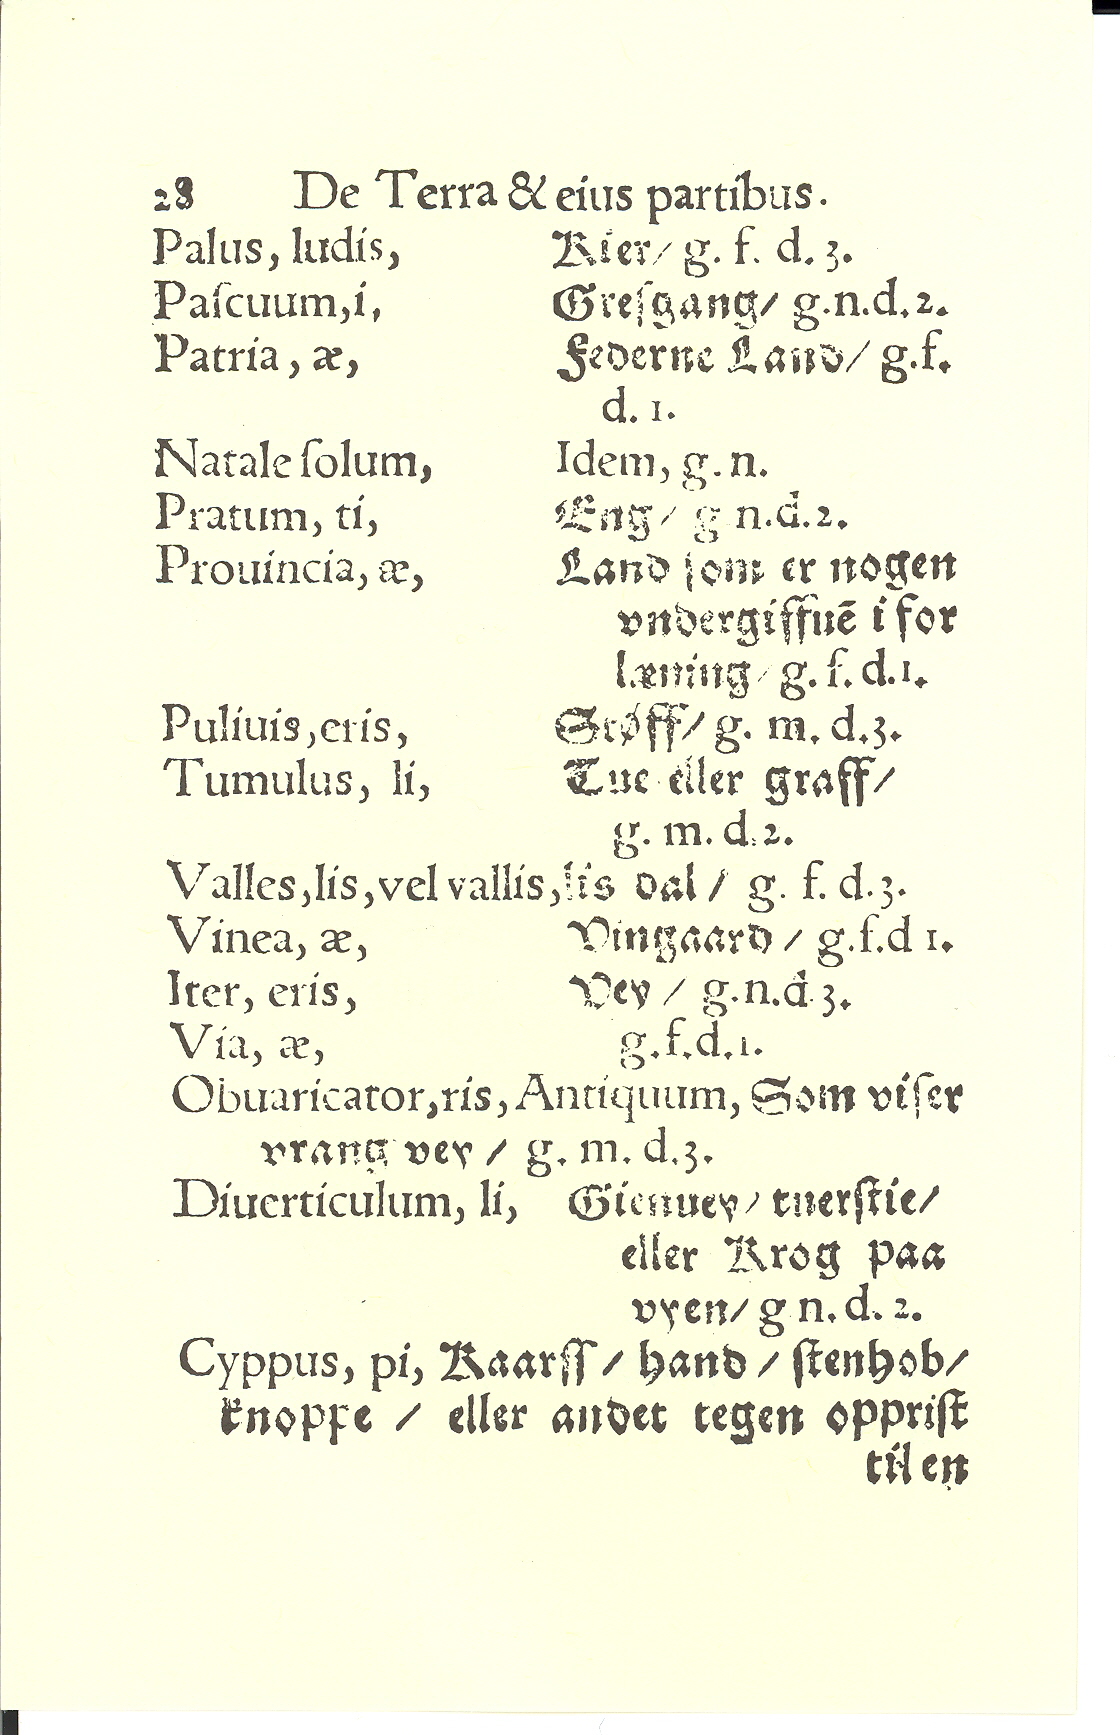 28 De Terra & eius partibus.
Palus, ludis, Kier/ g. f. d. 3.
Paſcuum,i, Greſgang/ g.n.d.2.
Patria, æ, Federne Land/ g.f.
d. 1.
Natale ſolum, Idem, g. n.
Pratum, ti, Eng/ g n.d.2.
Prouincia, æ, Land ſom er nogen
vndergiffuē i for
læning/ g. f. d.1.
Puluuis,eris, Støff/ g. m. d.3.
Tumulus, li, Tue eller graff/
g. m. d.2.
Valles,lis,vel vallis,lis dal/ g. f. d.3.
Vinea, æ, Vingaard/ g.f.d 1.
Iter, eris, Vey/ g.n.d 3.
Via, æ, g.f.d.1.
Obuaricator,ris, Antiquum, Som viſer
vrang vey/ g. m. d.3.
Diuerticulum, li, Gienuey/ tuerſtie/
eller Krog paa
vyen/ g n. d. 2.
Cyppus, pi, Kaarſſ/ hand/ ſtenhob/
knoppe/ eller andet tegen oppriſt
til en